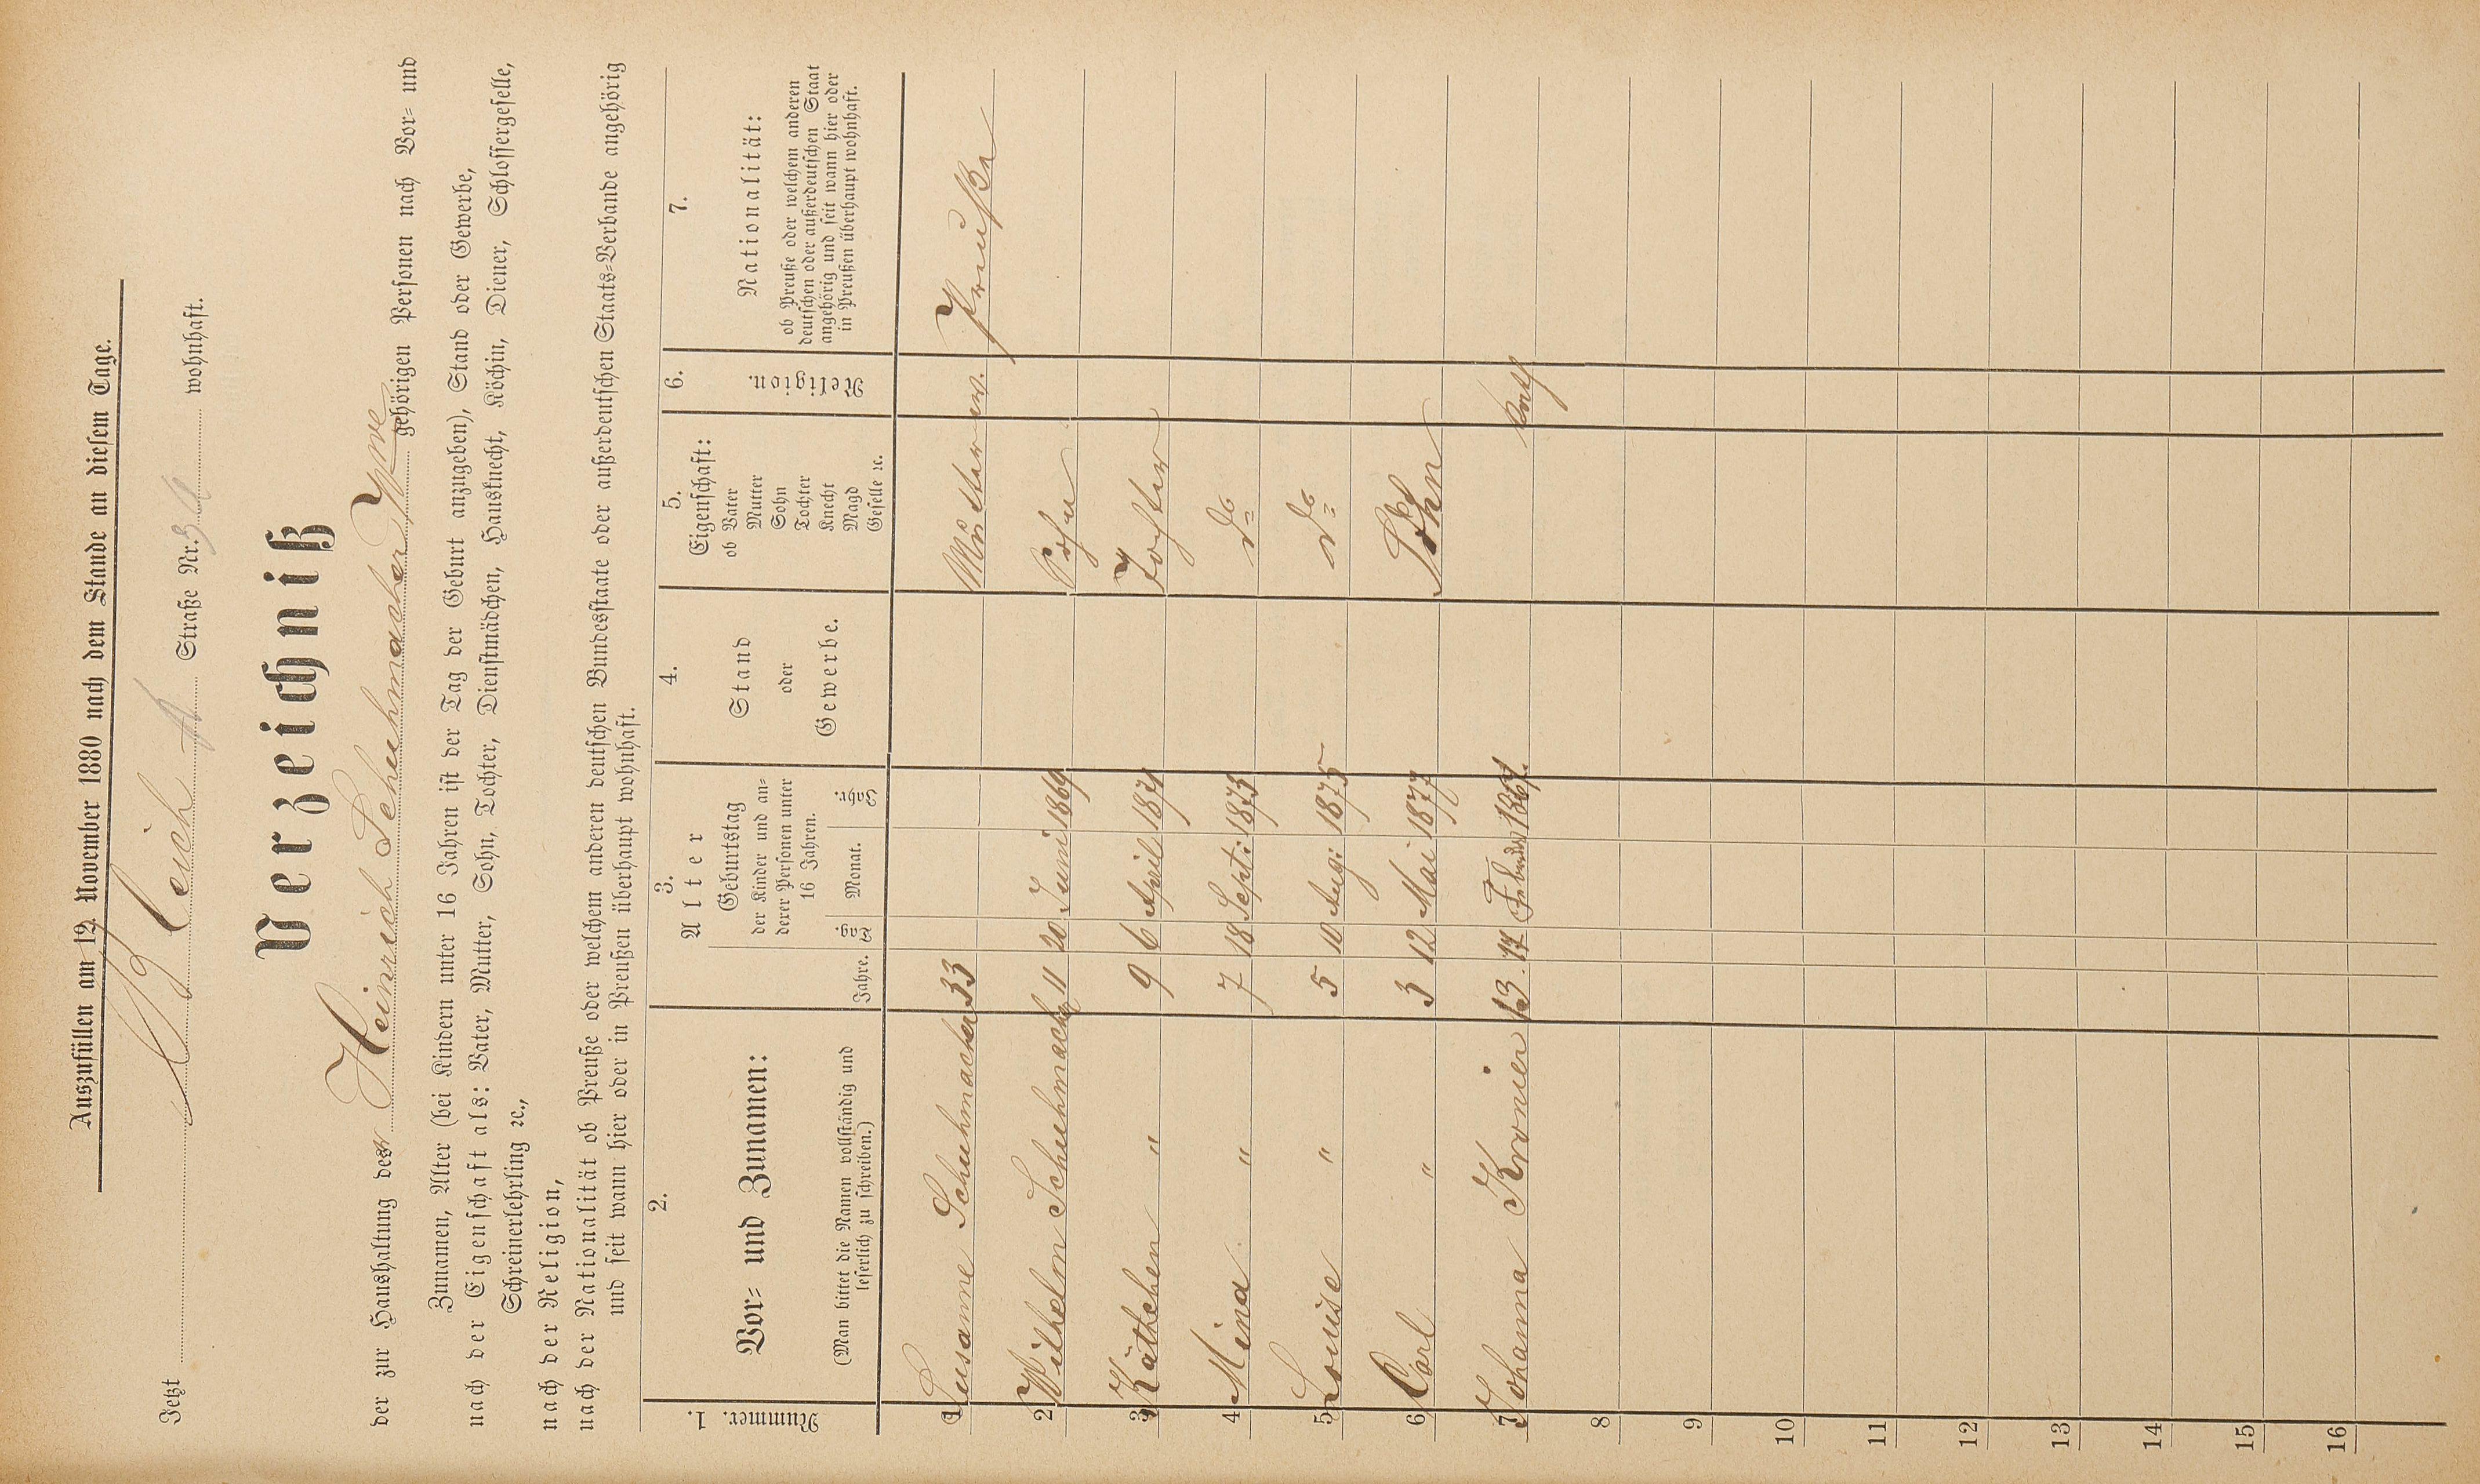 Auszufüllen am 12. November 1880 nach dem Stande an diesem Tage.
Jetzt Bleich Straße Nr. wohnhaft.
Verzeichniß
der zur Haushaltung der Heinrich Schuhmacher Wwe gehörigen Personen nach Vor- und
Zunamen, Alter (bei Kindern unter 16 Jahren ist der Tag der Geburt anzugeben), Stand oder Gewerbe,
nach der Eigenschaft als: Vater, Mutter, Sohn, Tochter, Dienstmädchen, Hausknecht, Köchin, Diener, Schlossergeselle,
Schreinerlehrling ꝛc.,
nach der Religion,
nach der Nationalität ob Preuße oder welchem anderen deutschen Bundesstaate oder außerdeutschen Staats-Verbande angehörig
und seit wann hier oder in Preußen überhaupt wohnhaft.
1. 2. 3. 4. 5. 6. 7.
Nummer.
Vor- und Zunamen:
(Man bittet die Namen vollständig und
leserlich zu schreiben.)
Alter
Jahre.
Geburtstag
der Kinder und an-
derer Personen unter
16 Jahren.
Tag Monat. Jahr.
Stand
oder
Gewerbe.
Eigenschaft:
ob Vater
Mutter
Sohn
Tochter
Knecht
Magd
Geselle ꝛc.
Religion.
Nationalität:
ob Preuße oder welchem anderen
deutschen oder außerdeutschen Staat
angehörig und seit wann hier oder
in Preußen überhaupt wohnhaft.
1 Susanne Schuhmacher 33 Mutter ev. Preuße
2 Wilhelm Schuhmacher 11 20 Juni 1869 Sohn
3 Käthchen " 9 6 April 1871 Tochter
4 Mina " 7 18 Sept: 1873 do
5 Louise " 5 10 Aug: 1875 do
6 Carl " 3 12 Mai 1877 Sohn
7 Johanna Kronier 13 17 Februar 1867. kath
8
9
10
11
12
13
14
15
16